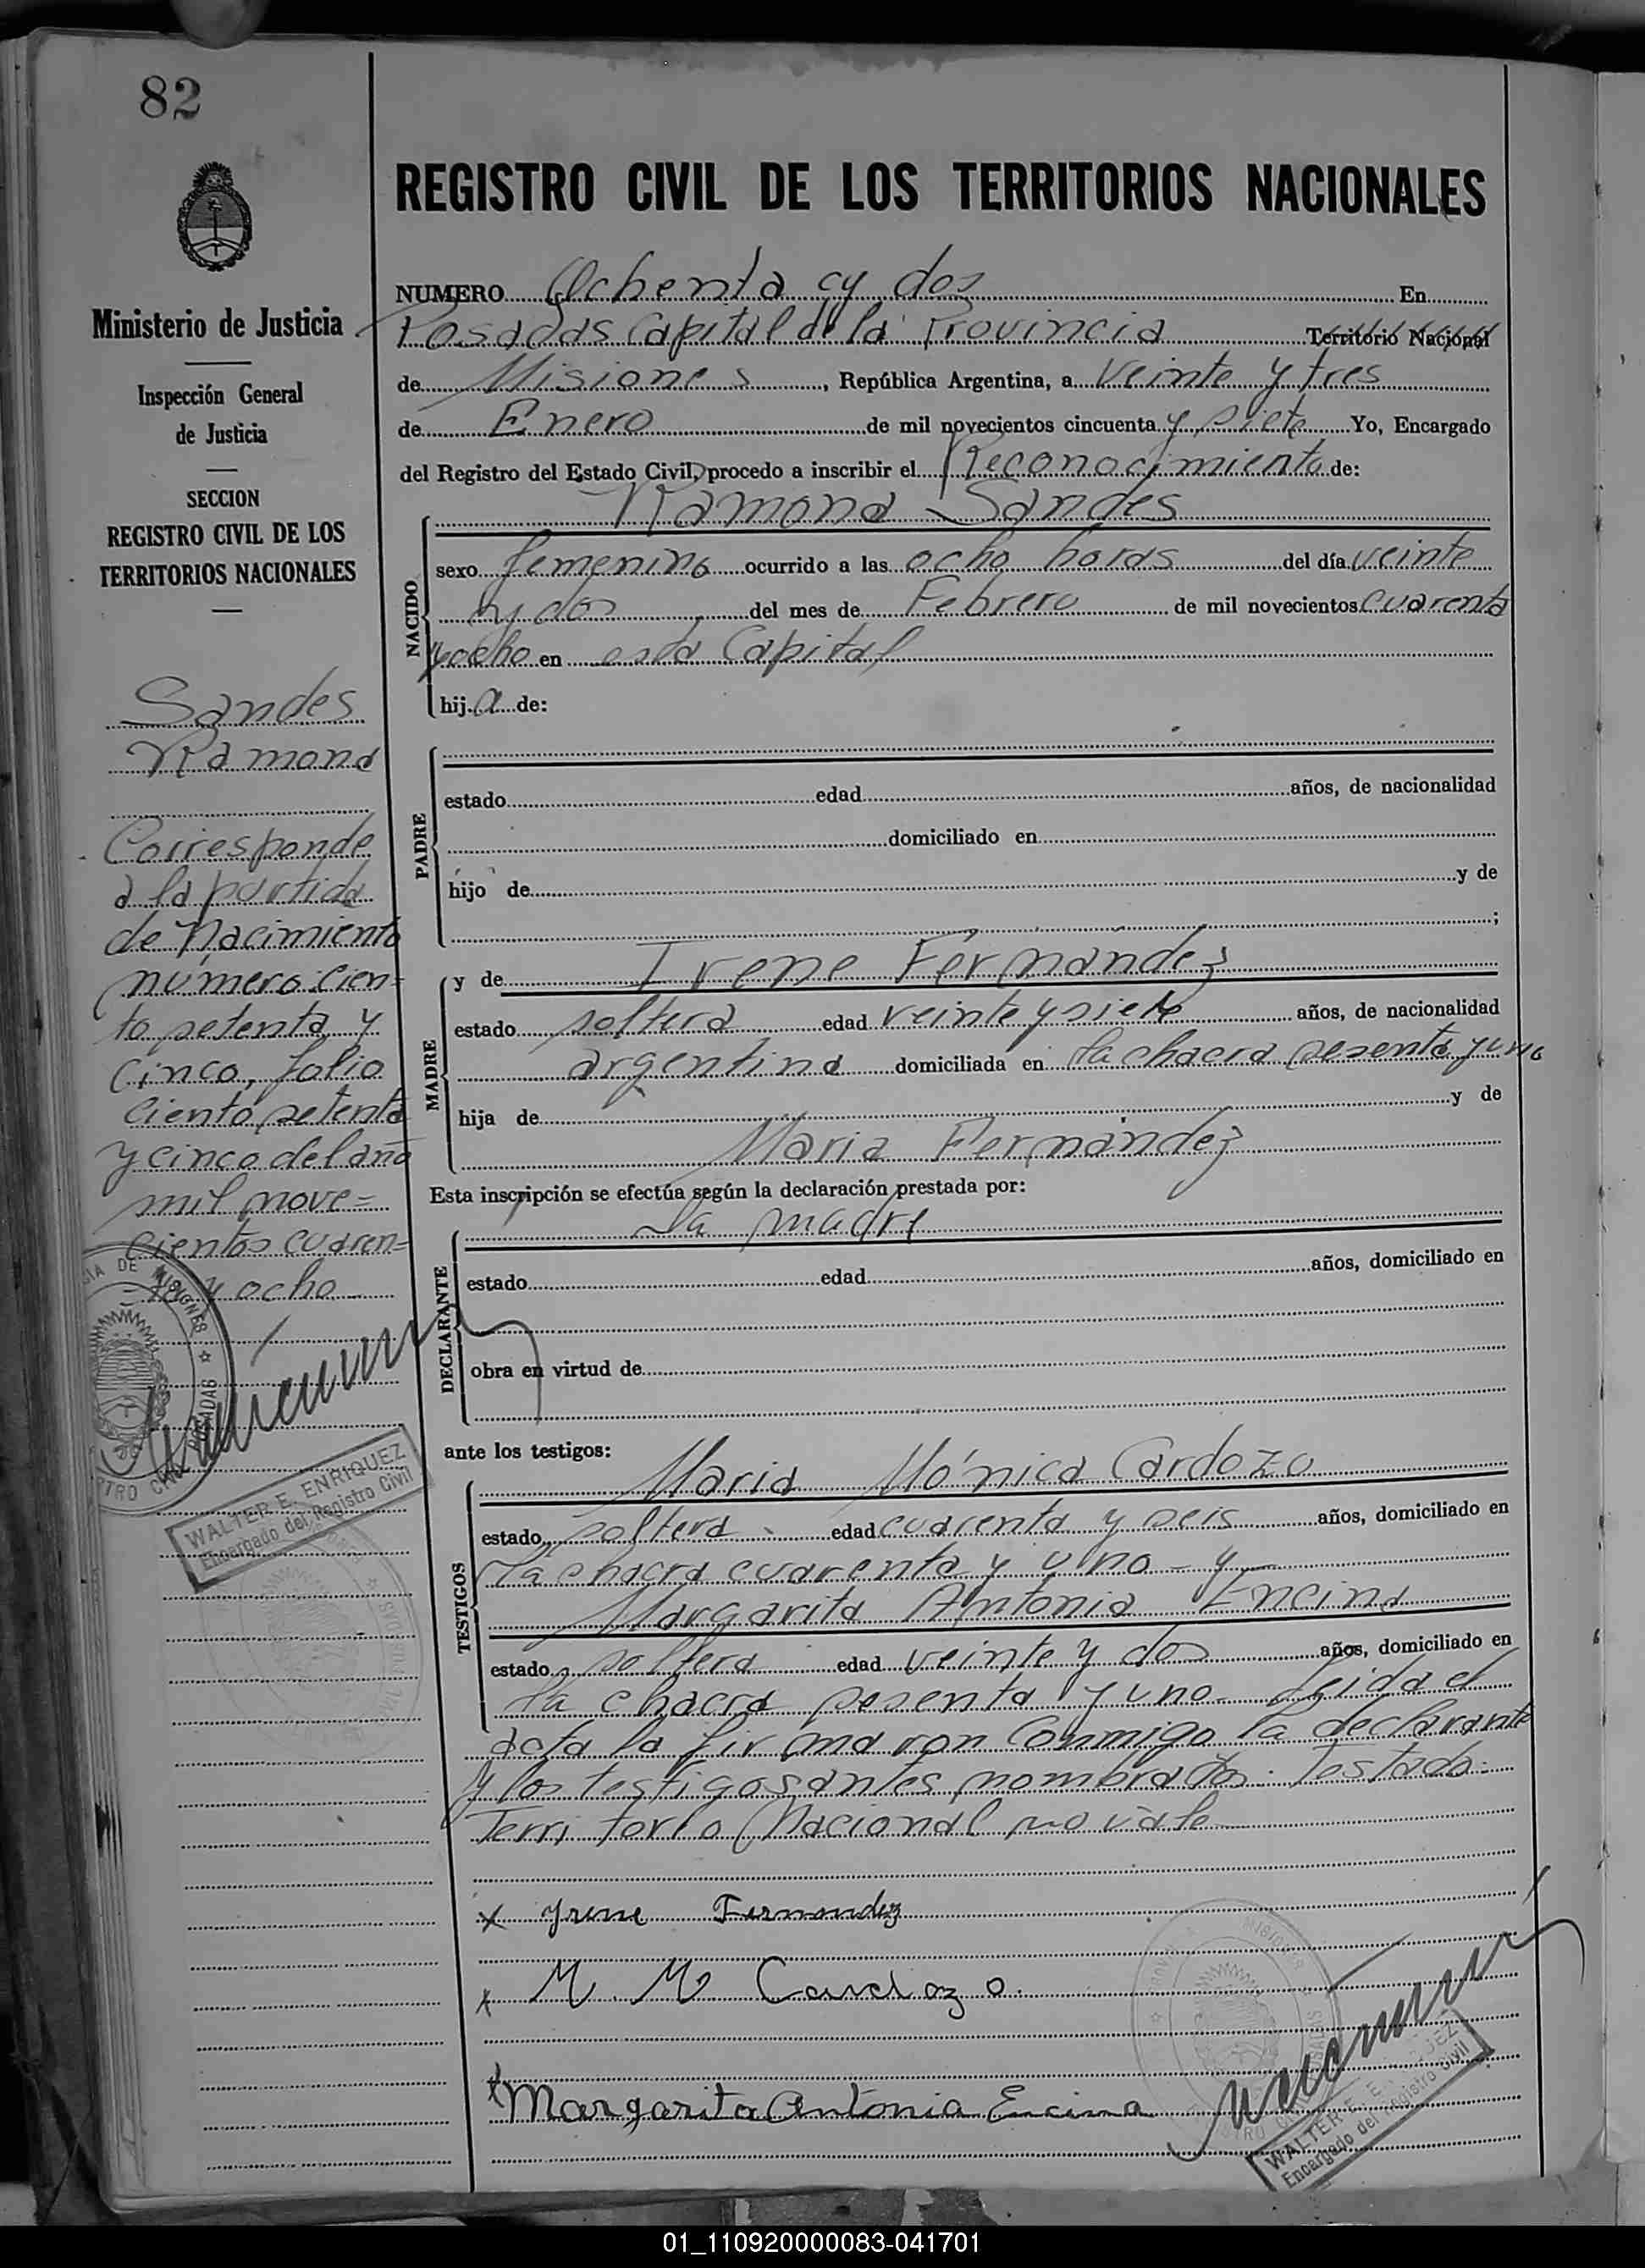 82
Ministerio de Justicia
Inspección General
de Justicia
SECCION
REGISTRO CIVIL DE LOS
TERRITORIOS NACIONALES
Sandes
Ramona
Corresponde
a la partida
de Nacimiento
número cien=
to setenta y
cinco, folio
ciento setenta
y cinco del año
mil nove=
cientos cuaren=
ta y ocho
WALTER E. ENRIQUEZ
Encargado del Registro Civil
REGISTRO CIVIL DE LOS TERRITORIOS NACIONALES
NUMERO Ochenta y dos En
Posadas Capital de la Provincia Territorio Nacional
de Misiones, República Argentina, a veinte y tres
de Enero de mil novecientos cincuenta y siete Yo, Encargado
del Registro del Estado Civil, procedo a inscribir el Reconocimiento de:
Ramona Sandes
NACIDO
sexo femenino ocurrido a las ocho horas del día veinte
y dos del mes de Febrero de mil novecientos cuarenta
y ocho en esta Capital
hija de:
PADRE
estado edad años, de nacionalidad
domiciliado en
hijo de y de
;
MADRE
y de Irene Fernández
estado soltera edad veinte y siete años, de nacionalidad
argentina domiciliada en la chacra sesenta y uno
hija de y de
Maria Fernández
Esta inscripción se efectúa según la declaración prestada por:
La madre
DECLARANTE
estado edad años, domiciliado en
obra en virtud de
ante los testigos:
TESTIGOS
Maria Mónica Cardozo
estado soltera edad cuarenta y seis años, domiciliado en
la chacra cuarenta y uno - y
Margarita Antonia Encina
estado soltera edad veinte y dos años, domiciliado en
la chacra sesenta y uno - Leida el
acta la firmaron conmigo la declarante
y los testigos antes nombrados. Testado:
Territorio Nacional no vale
x Irene Fernandez
x M. M. Cardozo.
x Margarita Antonia Encina
WALTER E. ENRIQUEZ
Encargado del Registro Civil
01_110920000083-041701